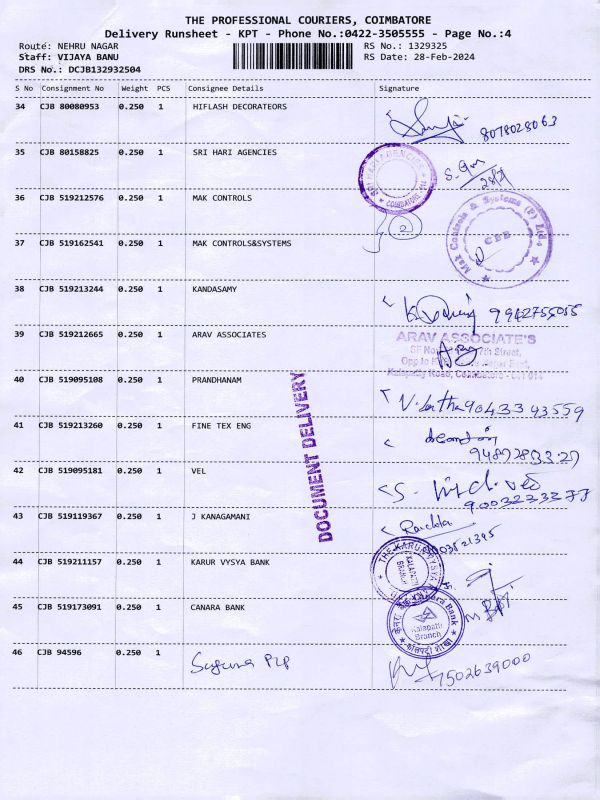 THE PROFESSIONAL COURIERS, COIMBATORE
Delivery Runsheet - KPT - Phone No.:0422-3505555 - Page No.:4
Route: NEHRU NAGAR
RS No.: 1329325
Staff: VIJAYA BANU
RS Date: 28-Feb-2024
DRS No.: DCJB132932504
S No Consignment No Weight PCS Consignee Details Signature
34 CJB 80080953 0.250 1 HIFLASH DECORATEORS
8078028063
35 CJB 80158825 0.250 1 SRI HARI AGENCIES
28/2
36 CJB 519212576 0.250 1 MAK CONTROLS
2
Mak Controls & Systems (P) Ltd.
CBE
37 CJB 519162541 0.250 1 MAK CONTROLS&SYSTEMS
38 CJB 519213244 0.250 1 KANDASAMY
9942755055
39 CJB 519212665 0.250 1 ARAV ASSOCIATES
ARAV ASSOCIATE'S
7th Street,
40 CJB 519095108 0.250 1 PRANDHANAM
V. Latha 9043393559
DOCUMENT DELIVERY
41 CJB 519213260 0.250 1 FINE TEX ENG
42 CJB 519095181 0.250 1 VEL
43 CJB 519119367 0.250 1 J KANAGAMANI
44 CJB 519211157 0.250 1 KARUR VYSYA BANK
THE KARUR VYSYA
KALAPATTI
BRANCH
45 CJB 519173091 0.250 1 CANARA BANK
Canara Bank
Kalapatti
Branch
46 CJB 94596 0.250 1 Suguna PIP
7502639000